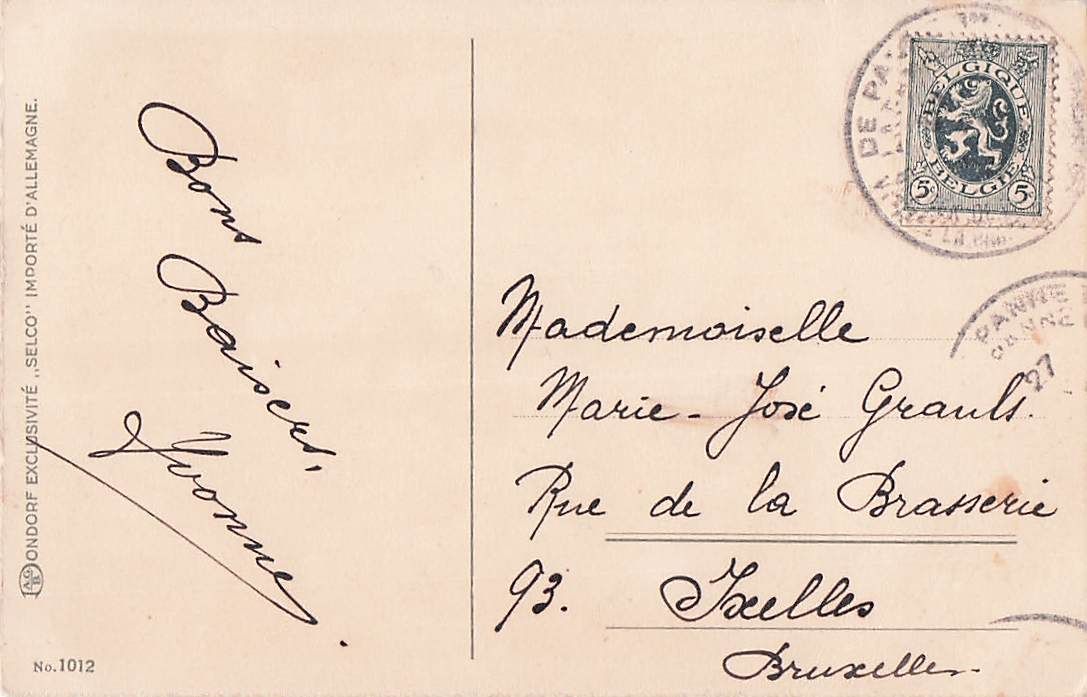 Bons
Baisers.
Yvonne.
Mademoiselle
Marie-José Grauls.
Rue de la Brasserie
93. Ixelles
Bruxelles
BELGIQUE
BELGIE
5c 5c
DE PA
PANNE
PANNE
27
AGB ONDORF EXCLUSIVITÉ „SELCO" IMPORTÉ D'ALLEMAGNE.
No. 1012